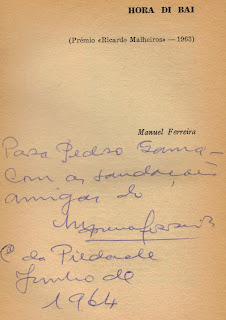 HORA DI BAI
(Prémio «Ricardo Malheiros» — 1963)
Manuel Ferreira
Para Pedro Gama –
com as saudações
amigas do
Manuel Ferreira
C. da Piedade
Junho de
1964